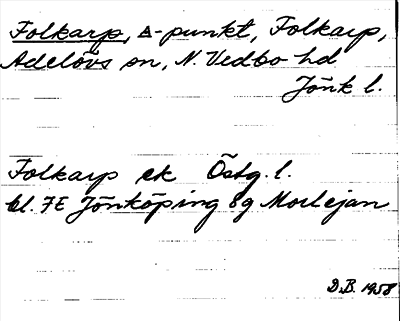 Folkarp, △-punkt, Folkarp,
Adelövs sn, N. Vedbo hd
Jönk l.
Folkarp ek Östg. l.
bl. 7E Jönköping 8g Morlejan
D.B. 1958